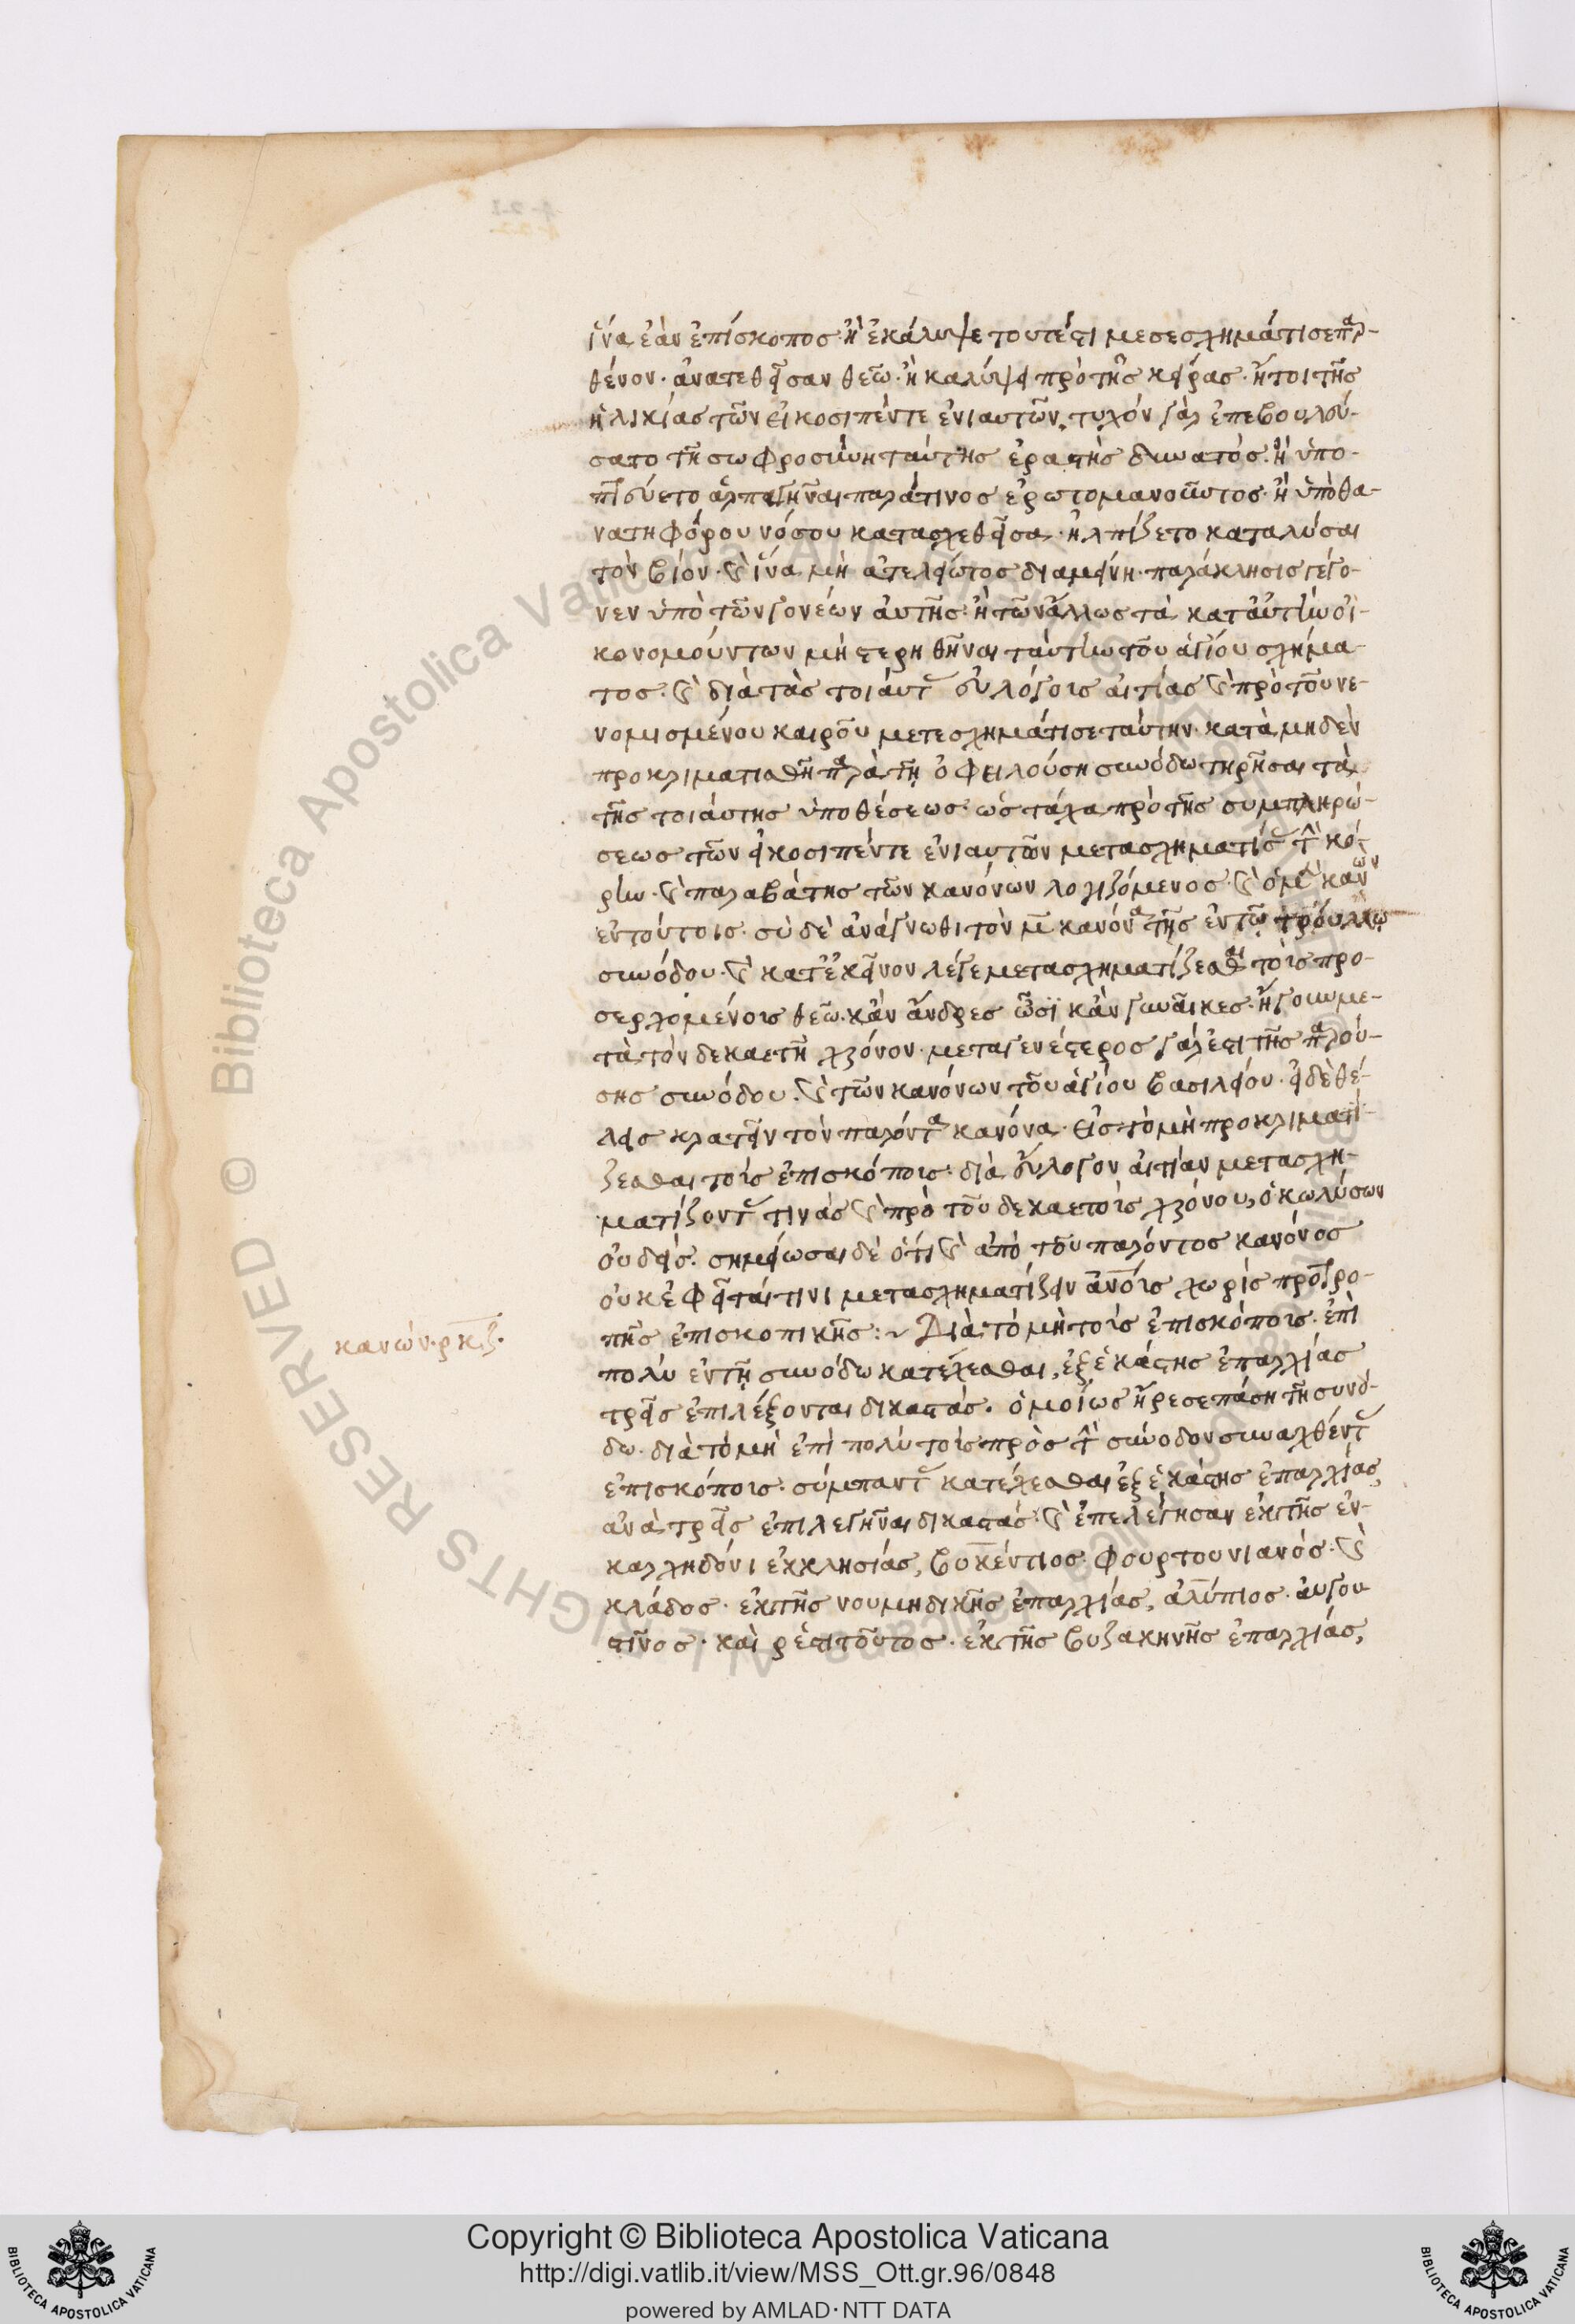 ἵνα ἐὰν ἐπίσκοπος ἢ ἐκάλυψε τουτέστι μετεσχημάτισε παρ-
θένον· ἀνατεθεῖσαν θεῶ· ἢ καλύψει πρὸ τῆς κείρας· ἤτοι τῆς
ἡλικίας τῶν εἰκοσιπέντε ἐνιαυτῶν, τυχὸν γὰρ ἐπεβουλεύ-
σατο τῆ σωφροσύνη ταύτης ἐραστὴς δυνατός· ἢ ὑπο-
πτεύετο ἁρπαγῆναι παρά τινος ἐρωτομανοῦντος· ἢ ὑπὸ θα-
νατηφόρου νόσου κατασχεθεῖσα· ἠλπίζετο καταλύσαι
τὸν βίον· καὶ ἵνα μὴ ἀτελείωτος διαμείνη· παράκλησις γέγο-
νεν ὑπὸ τῶν γονέων αὐτῆς· ἢ τῶν ἄλλως τὰ κατ' αὐτὴν οἰ-
κονομούντων μὴ στερηθῆναι ταύτην τοῦ ἁγίου σχήμα-
τος· καὶ διὰ τὰς τοιαύτ εὐλόγοις αἰτίας καὶ πρὸ τοῦ νε-
νομισμένου καιροῦ μετεσχημάτισε ταύτην· κατὰ μηδὲν
προκριματισθῆ παρὰ τῆ ὀφειλούση συνόδω τηρῆσαι τὰ
τῆς τοιαύτης ὑποθέσεως· ὡς τάχα πρὸ τῆς συμπληρώ-
σεως τῶν εἰκοσιπέντε ἐνιαυτῶν μετασχηματίσ τὴν κό-
ρην· καὶ παραβάτης τῶν κανόνων λογιζόμενος· καὶ ὁ μὲν κανὼν
ἐν τούτοις· σὺ δὲ ἀνάγνωθι τὸν μ̅ κανόνα τῆς ἐν τῶ τρούλλω
συνόδου· καὶ κατ' ἐκεῖνον λέγε μετασχηματίζεσθαι τοῖς προ-
σερχομένοις θεῶ· κἂν ἄνδρες ὦσι κἂν γυναῖκες· ἤγουν με-
τὰ τὸν δεκαετῆ χρόνον· μεταγενέστερος γάρ ἐστι τῆς παρού-
σης συνόδου· καὶ τῶν κανόνων τοῦ ἁγίου βασιλείου· εἰ δὲ θέ-
λεις κρατεῖν τὸν παρόντα κανόνα· εἰς τὸ μὴ προκριματί-
ζεσθαι τοῖς ἐπισκόποις· διὰ εὔλογον αἰτίαν μετασχη-
ματίζοντ τινὰς καὶ πρὸ τοῦ δεκαετοῖς χρόνου, ὁ κωλύσων
οὐδείς· σημείωσαι δὲ ὅτι καὶ ἀπὸ τοῦ παρόντος κανόνος
οὐκ ἐφεῖταί τινι μετασχηματίζειν ἀνοῖς χωρὶς προτρο-
πῆς ἐπισκοπικῆς :~ Διὰ τὸ μὴ τοῖς ἐπισκόποις· ἐπὶ
κανών· ρκζ·
πολὺ ἐν τῆ συνόδω κατέχεσθαι, ἐξ ἑκάστης ἐπαρχίας
τρεῖς ἐπιλέξονται δικαστάς· ὁμοίως ἤρεσε πάση τῆ συνό-
δω· διὰ τὸ μὴ ἐπὶ πολὺ τοῖς πρὸς τὴν σύνοδον συναχθέντ
ἐπισκόποις· σύμπαντ κατέχεσθαι ἐξ ἑκάστης ἐπαρχίας,
ἀνὰ τρεῖς ἐπιλεγῆναι δικαστάς· καὶ ἐπελέγησαν ἐκ τῆς ἐν
καλχηδόνι ἐκκλησίας, βυκέντιος· φουρτουνιανός· καὶ
κλάδος· ἐκ τῆς νουμηδικῆς ἐπαρχίας, ἀλύπιος· αὐγου-
στῖνος· καὶ ρεστιτοῦτος· ἐκ τῆς βυζακηνῆς ἐπαρχίας,
Copyright © Biblioteca Apostolica Vaticana
http://digi.vatlib.it/view/MSS_Ott.gr.96/0848
powered by AMLAD·NTT DATA